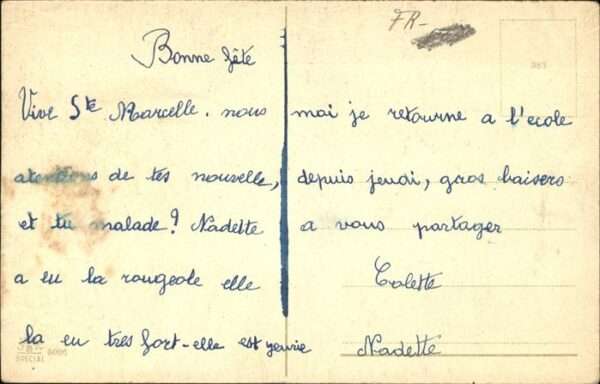 FR-
Bonne fête
Vive Ste Marcelle. nous
atendons de tes nouvelle,
et tu malade? Nadette
a eu la rougeole elle
la eu tres fort-elle est
moi je retourne a l'ecole
depuis jeudi, gros baisers
a vous partager
Colette
Nadette
SPECIAL